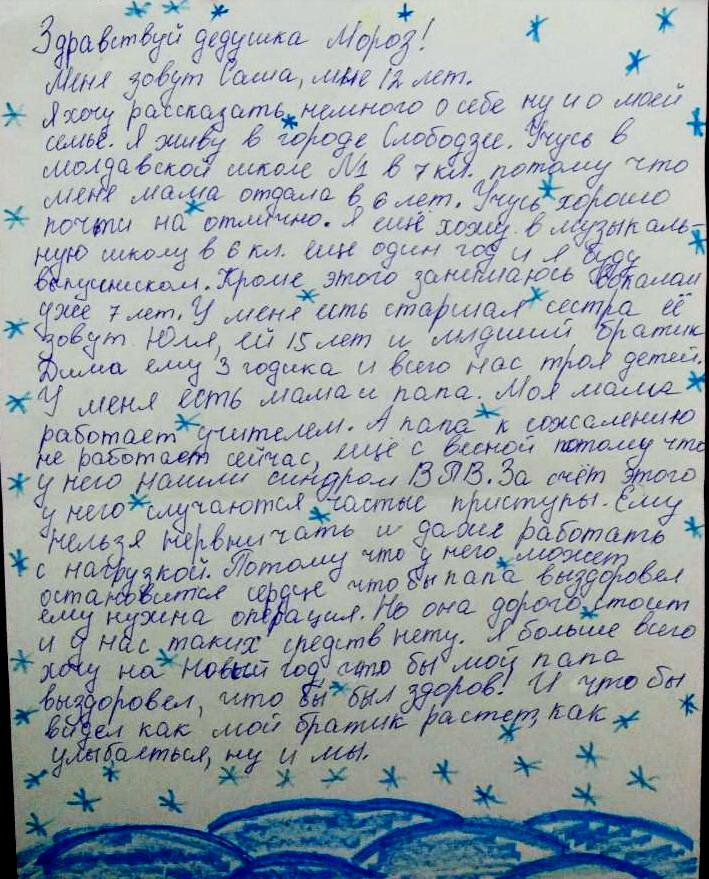 Здравствуй дедушка Мороз!
Меня зовут Саша, мне 12 лет.
Я хочу рассказать немного о себе ну и о моей
семье. Я живу в городе Слободзее. Учусь в
молдавской школе №1 в 7 кл. потому что
меня мама отдала в 6 лет. Учусь хорошо
почти на отлично. Я ещё хожу в музыкаль-
ную школу в 6 кл. ещё один год и я буду
выпускником. Кроме этого занимаюсь вокалам
уже 7 лет. У меня есть старшая сестра её
зовут Юля, ей 15 лет и младший братик
Дима ему 3 годика и всего нас троя детей.
У меня есть мама и папа. Моя мама
работает учителем. А папа к сожалению
не работает сейчас, ещё с весной потому что
у него нашли синдром ВПВ. За счёт этого
у него случаются частые приступы. Ему
нельзя нервничать и даже работать
с нагрузкой. Потому что у него может
остановится сердце что бы папа выздоровел
ему нужна операция. Но она дорого стоит
и у нас таких средств нету. Я больше всего
хочу на Новый год что бы мой папа
выздоровел, что бы был здоров! И что бы
видел как мой братик растет, как
улыбается, ну и мы.